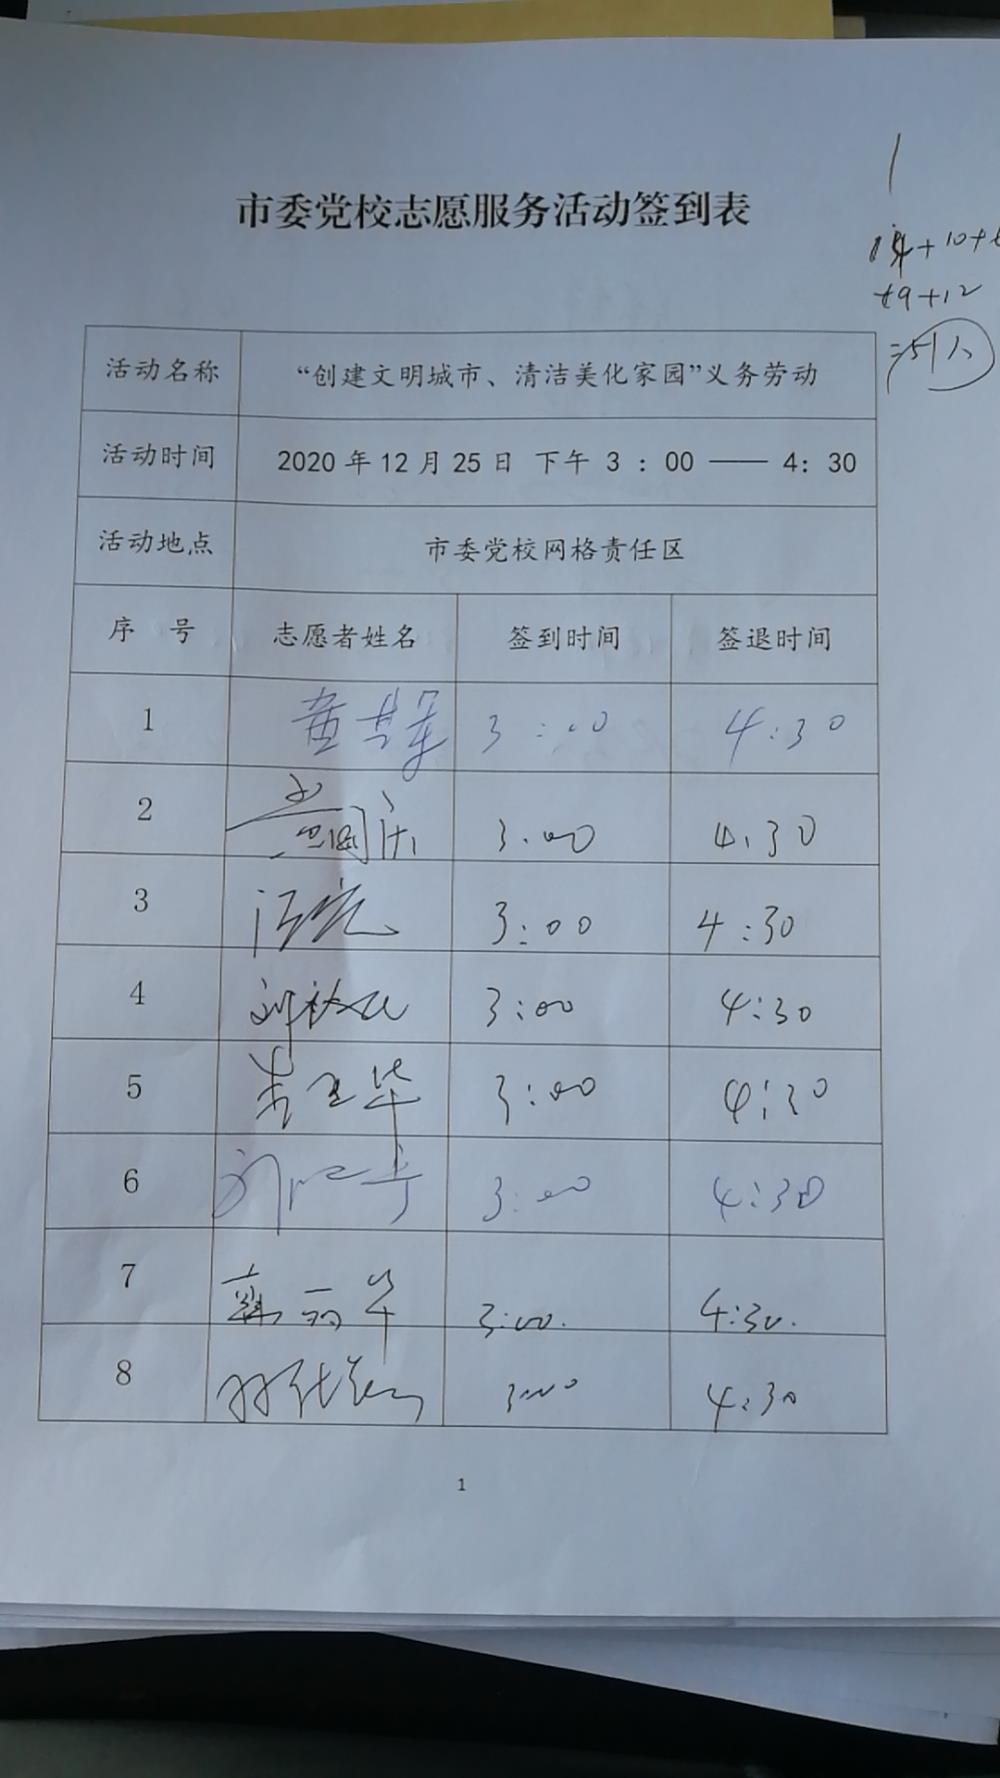 市委党校志愿服务活动签到表
+9+12
=51人
活动名称 “创建文明城市、清洁美化家园”义务劳动
活动时间 2020 年 12 月 25 日 下午 3 : 00 —— 4: 30
活动地点 市委党校网格责任区
序 号 志愿者姓名 签到时间 签退时间
1 3:00 4:30
2 3:00 4:30
3 汪亮 3:00 4:30
4 3:00 4:30
5 3:00 4:30
6 3:00 4:30
7 3:00. 4:30.
8 3:00 4:30
1